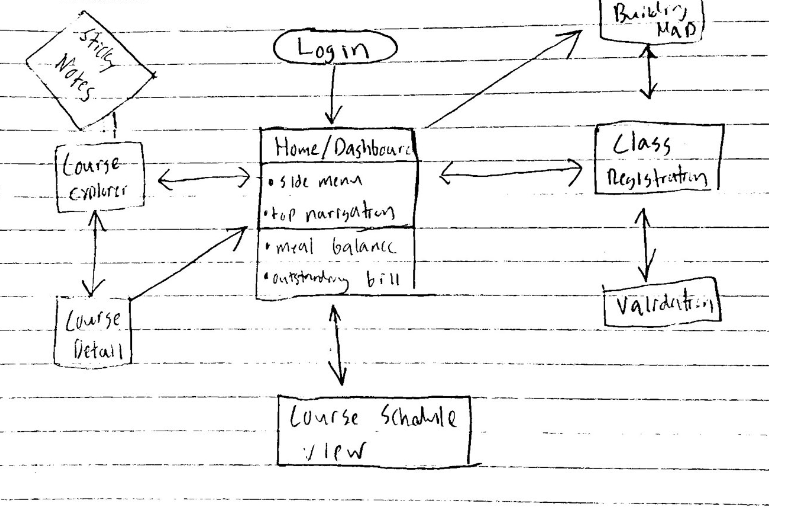 Sticky
Notes
Login
Building
Map
Home/Dashboard
• side menu
• top navigation
• meal balance
• outstanding bill
Course
Explorer
Class
Registration
Course
Detail
Validation
Course Schedule
View